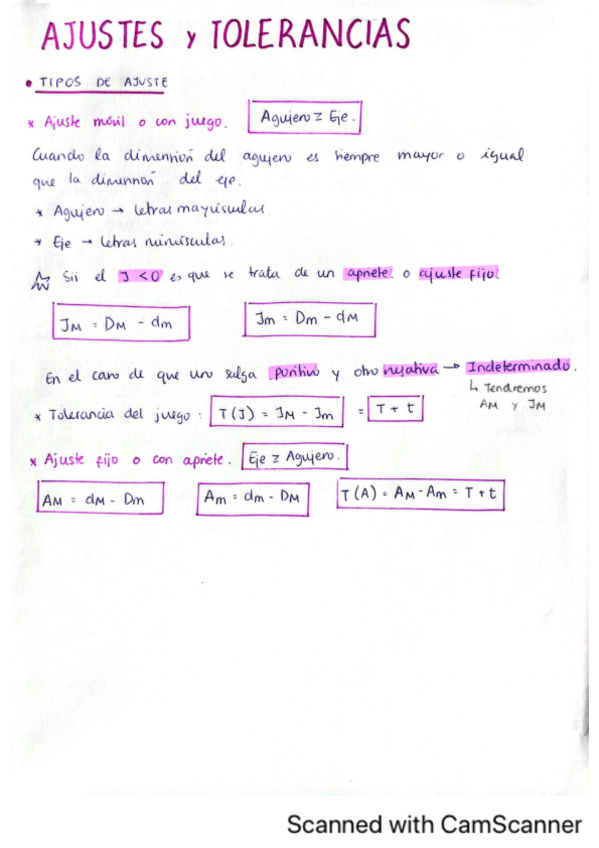 AJUSTES y TOLERANCIAS
• TIPOS DE AJUSTE
* Ajuste móvil o con juego. Agujero ≥ Eje.
Cuando la dimensión del agujero es siempre mayor o igual
que la dimensión del eje.
* Agujero → letras mayúsculas.
* Eje → letras minúsculas.
Si el J < 0 es que se trata de un apriete. o ajuste fijo.
JM = DM - dm
Jm = Dm - dM
En el caso de que uno salga positivo y otro negativa → Indeterminado.
↳ Tendremos
AM y JM
* Tolerancia del juego : T(J) = JM - Jm = T + t
* Ajuste fijo o con apriete. Eje ≥ Agujero.
AM = dM - Dm
Am = dm - DM
T(A) = AM - Am = T + t
Scanned with CamScanner